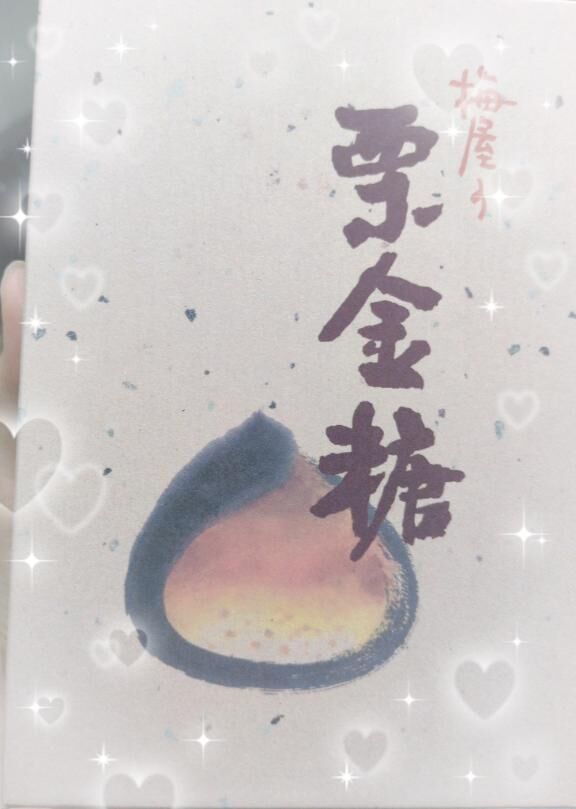 梅屋
栗金糖